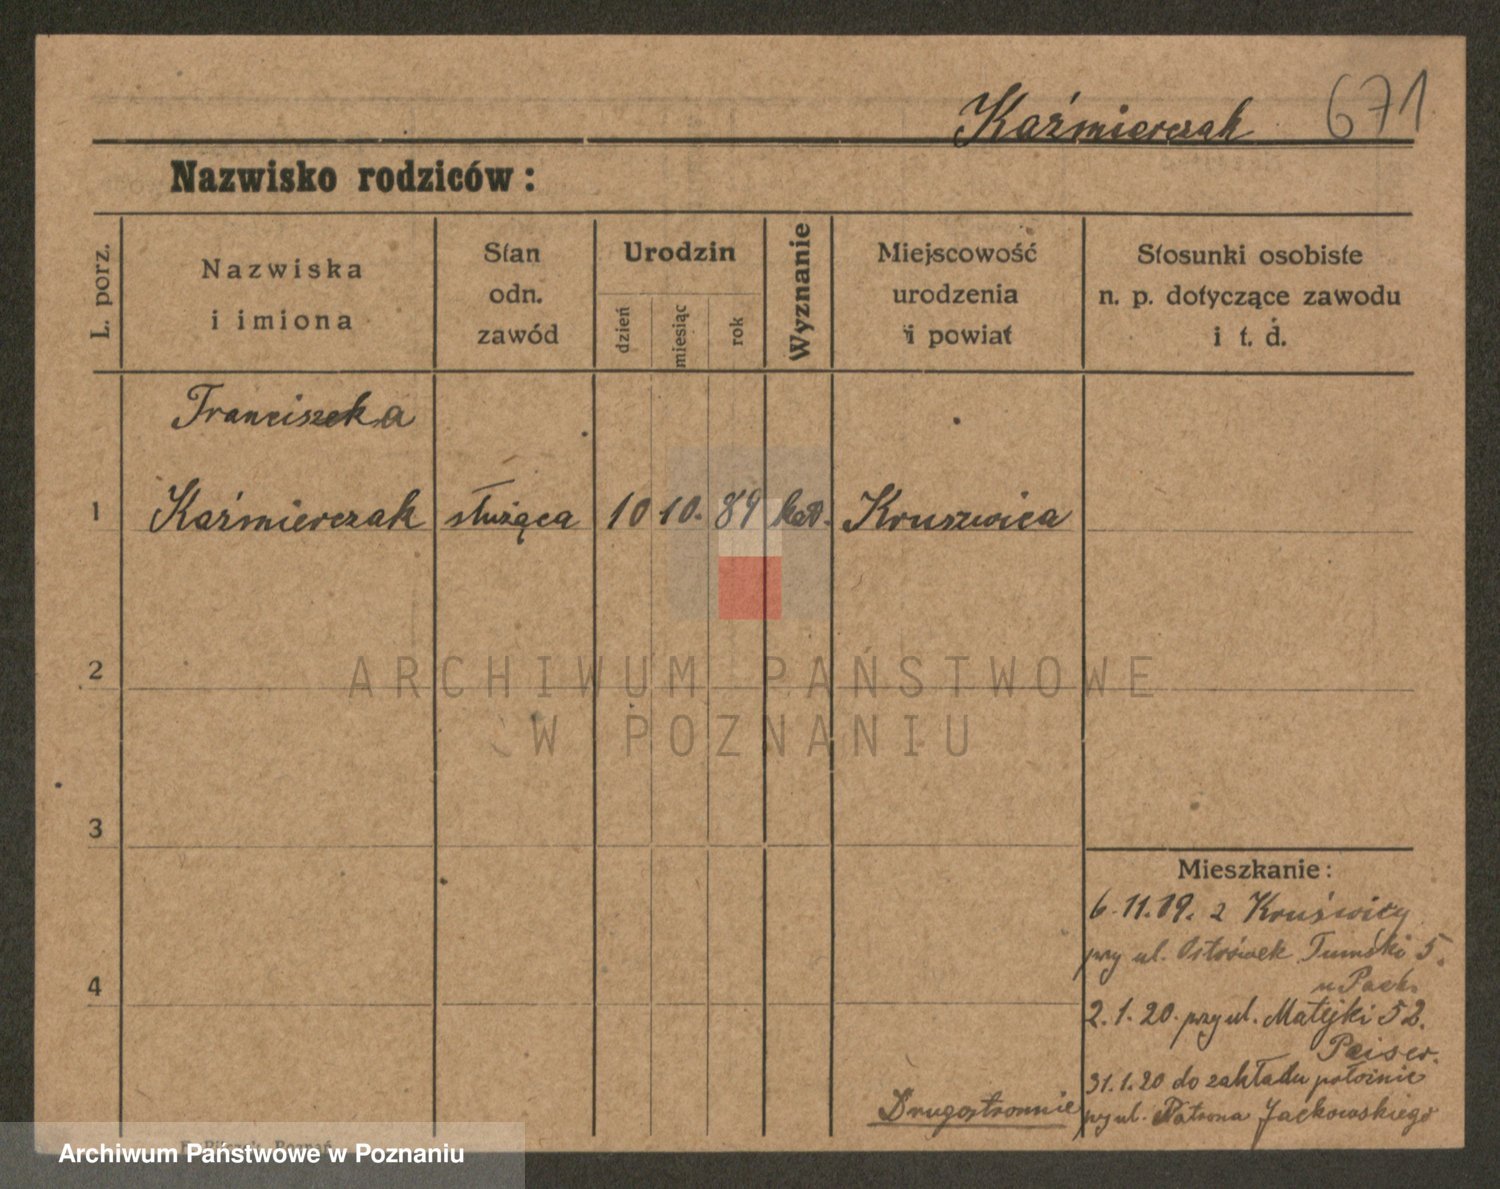 Kaźmierczak 671
Nazwisko rodziców:
L. porz.
Nazwiska
i imiona
Stan
odn.
zawód
Urodzin
dzień
miesiąc
rok
Wyznanie
Miejscowość
urodzenia
i powiat
Stosunki osobiste
n. p. dotyczące zawodu
i t. d.
Franciszeka
1 Kaźmierczak służąca 10 10. 89 kat. Kruszwica
2
ARCHIWUM PAŃSTWOWE
W POZNANIU
3
Mieszkanie:
6.11.19. z Kruświcy
przy ul. Ostrówek Tumski 5.
4
u Pach.
2.1.20. przy ul. Matejki 52.
Peiser.
31.1.20 do zakładu położnic
Drugostronnie
przy ul. Patrona Jackowskiego
Poznań
Archiwum Państwowe w Poznaniu